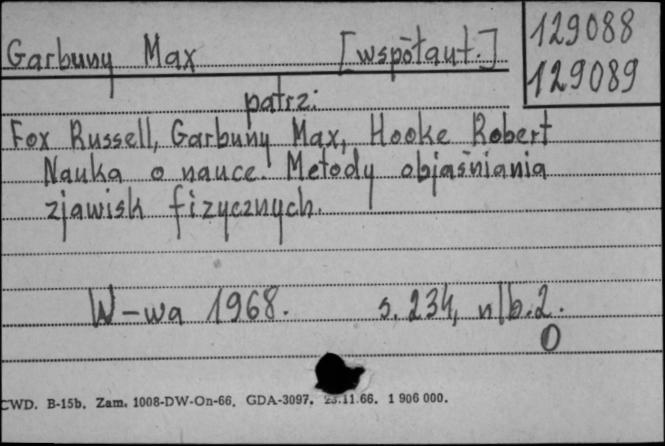 Garbuny Max [współaut.] 129088
129089
patrz:
Fox Russell, Garbuny Max, Hooke Robert
Nauka o nauce. Metody objaśniania
zjawisk fizycznych.
W-wa 1968. s. 234, nlb. 2.
O
CWD. B-15b. Zam. 1008-DW-On-66. GDA-3097. 23.11.66. 1 906 000.